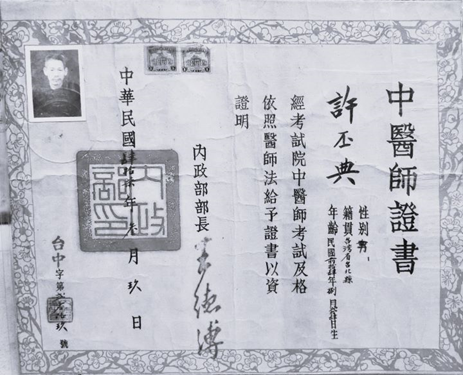 中醫師證書
許丕典
性別男
籍貫台灣省台北縣
年齡民國前
年 月 日生
經考試院中醫師考試及格
依照醫師法給予證書以資
證明
內政部部長
王德溥
中華民國肆拾 年 月玖日
台中字第 玖號
內政部印